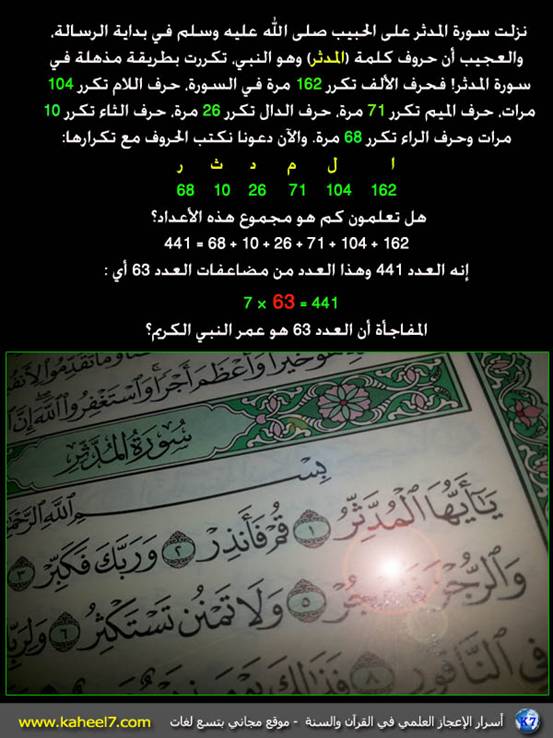 نزلت سورة المدثر على الحبيب صلى الله عليه وسلم في بداية الرسالة،
والعجيب أن حروف كلمة (المدثر) وهو النبي، تكررت بطريقة مذهلة في
سورة المدثر! فحرف الألف تكرر 162 مرة في السورة، حرف اللام تكرر 104
مرات، حرف الميم تكرر 71 مرة، حرف الدال تكرر 26 مرة، حرف الثاء تكرر 10
مرات وحرف الراء تكرر 68 مرة. والآن دعونا نكتب الحروف مع تكرارها:
ا ل م د ث ر
162 104 71 26 10 68
هل تعلمون كم هو مجموع هذه الأعداد؟
162 + 104 + 71 + 26 + 10 + 68 = 441
إنه العدد 441 وهذا العدد من مضاعفات العدد 63 أي :
441 = 63 × 7
المفاجأة أن العدد 63 هو عمر النبي الكريم؟
خيرا وأعظم أجرا واستغفروا الله إن
سورة المدثر
بسم الله
يَٰٓأَيُّهَا ٱلْمُدَّثِّرُ ١ قُمْ فَأَنذِرْ ٢ وَرَبَّكَ فَكَبِّرْ ٣
وَٱلرُّجْزَ ٥ وَلَا تَمْنُن تَسْتَكْثِرُ ٦
في الناقور ٨ فذلك
أسرار الإعجاز العلمي في القرآن والسنة - موقع مجاني بتسع لغات www.kaheel7.com
K7